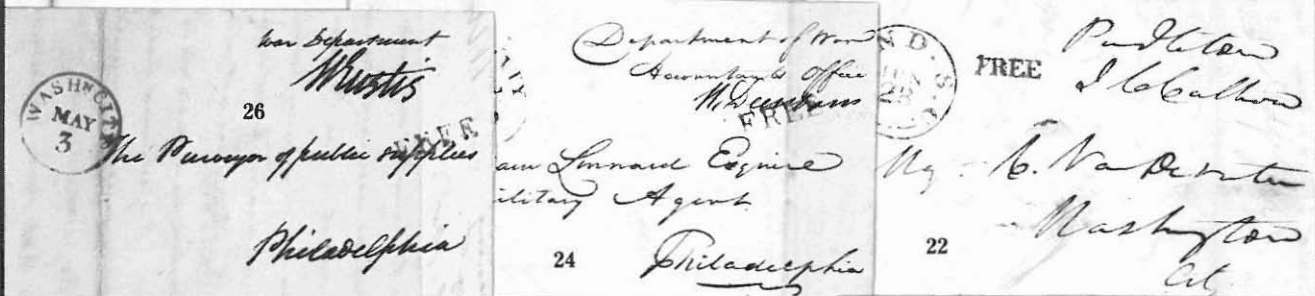 War Department
WEustis
WASHN CITY
MAY
3
26
FREE
The Purveyor of public supplies
Philadelphia
Department of War
Accountants Office
FREE
Linnard Esquire
ilitary Agent
24
Philadelphia
ND. S.C
FREE
Pendleton
J C Calhoun
C. VanDeventer
22
Washington
City